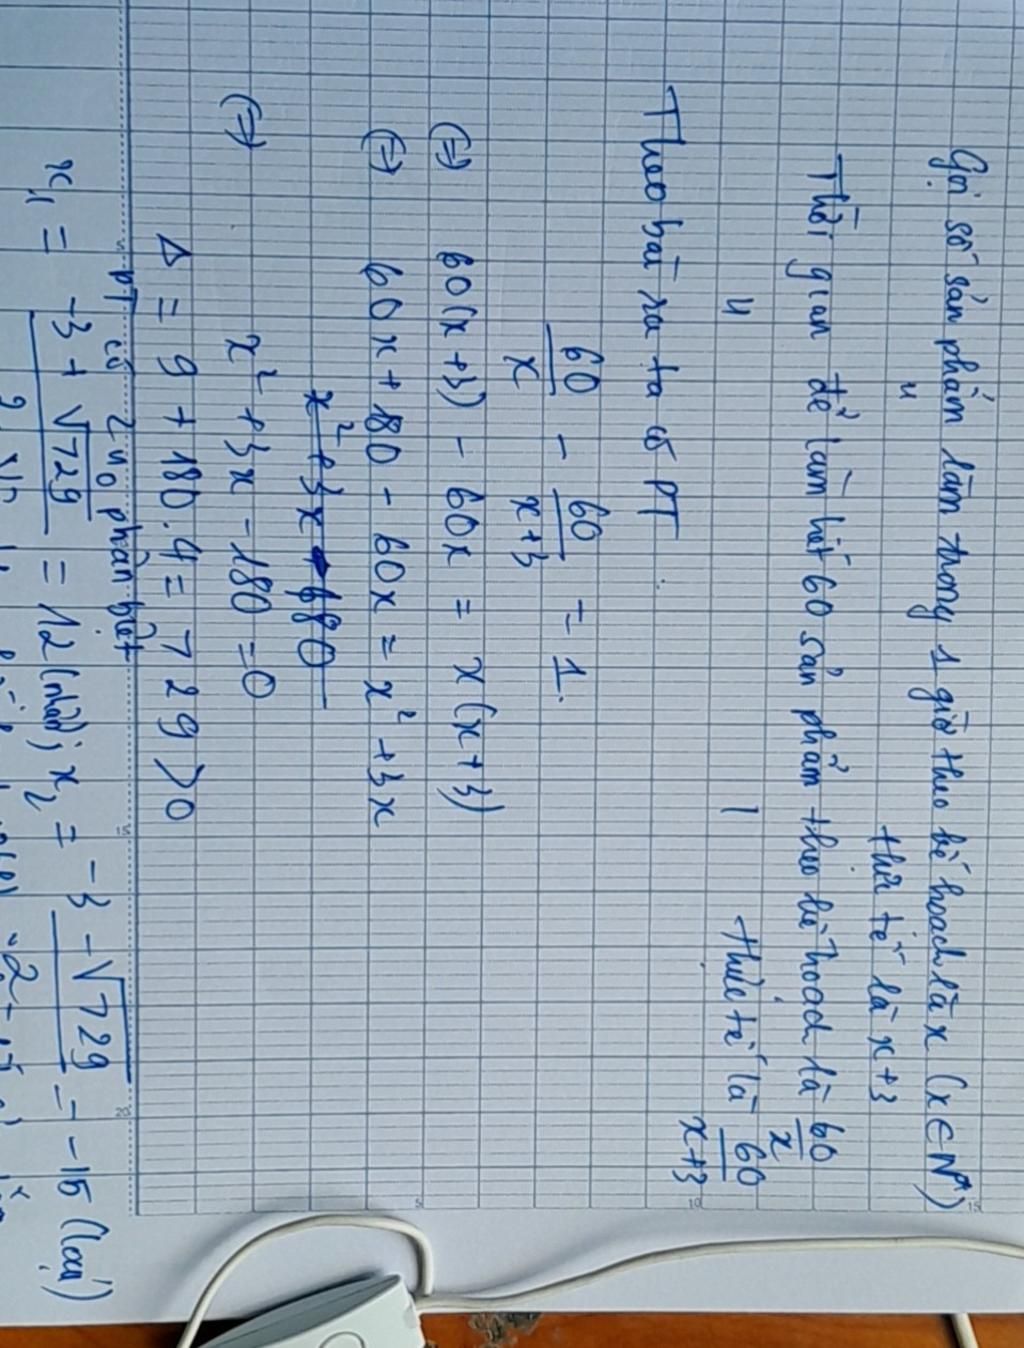 Gọi số sản phẩm làm trong 1 giờ theo kế hoạch là x (x ∈ N*)
" thực tế là x+3
Thời gian để làm hết 60 sản phẩm theo kế hoạch là 60/x
" | thực tế là 60/x+3
Theo bài ra ta có PT
60/x - 60/x+3 = 1.
(=) 60(x+3) - 60x = x(x+3)
(=) 60x + 180 - 60x = x² + 3x
(=) x² + 3x - 180 = 0
Δ = 9 + 180.4 = 729 > 0
PT có 2 n₀ phân biệt
x₁ = -3 + √729 / 2 = 12 (nhận); x₂ = -3 - √729 / 2 = -15 (loại)